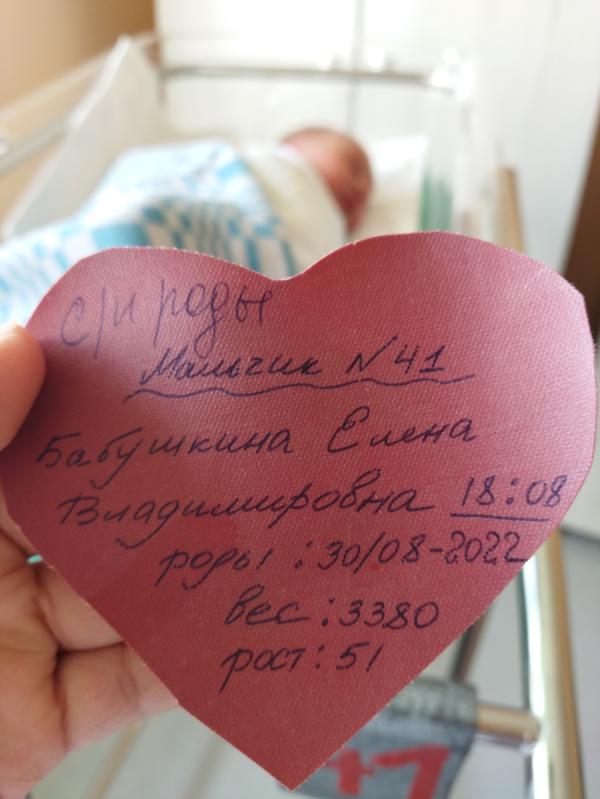 с/и роды
Мальчик N 41
Бабушкина Елена
Владимировна 18:08
роды: 30/08-2022
вес: 3380
рост: 51
+1